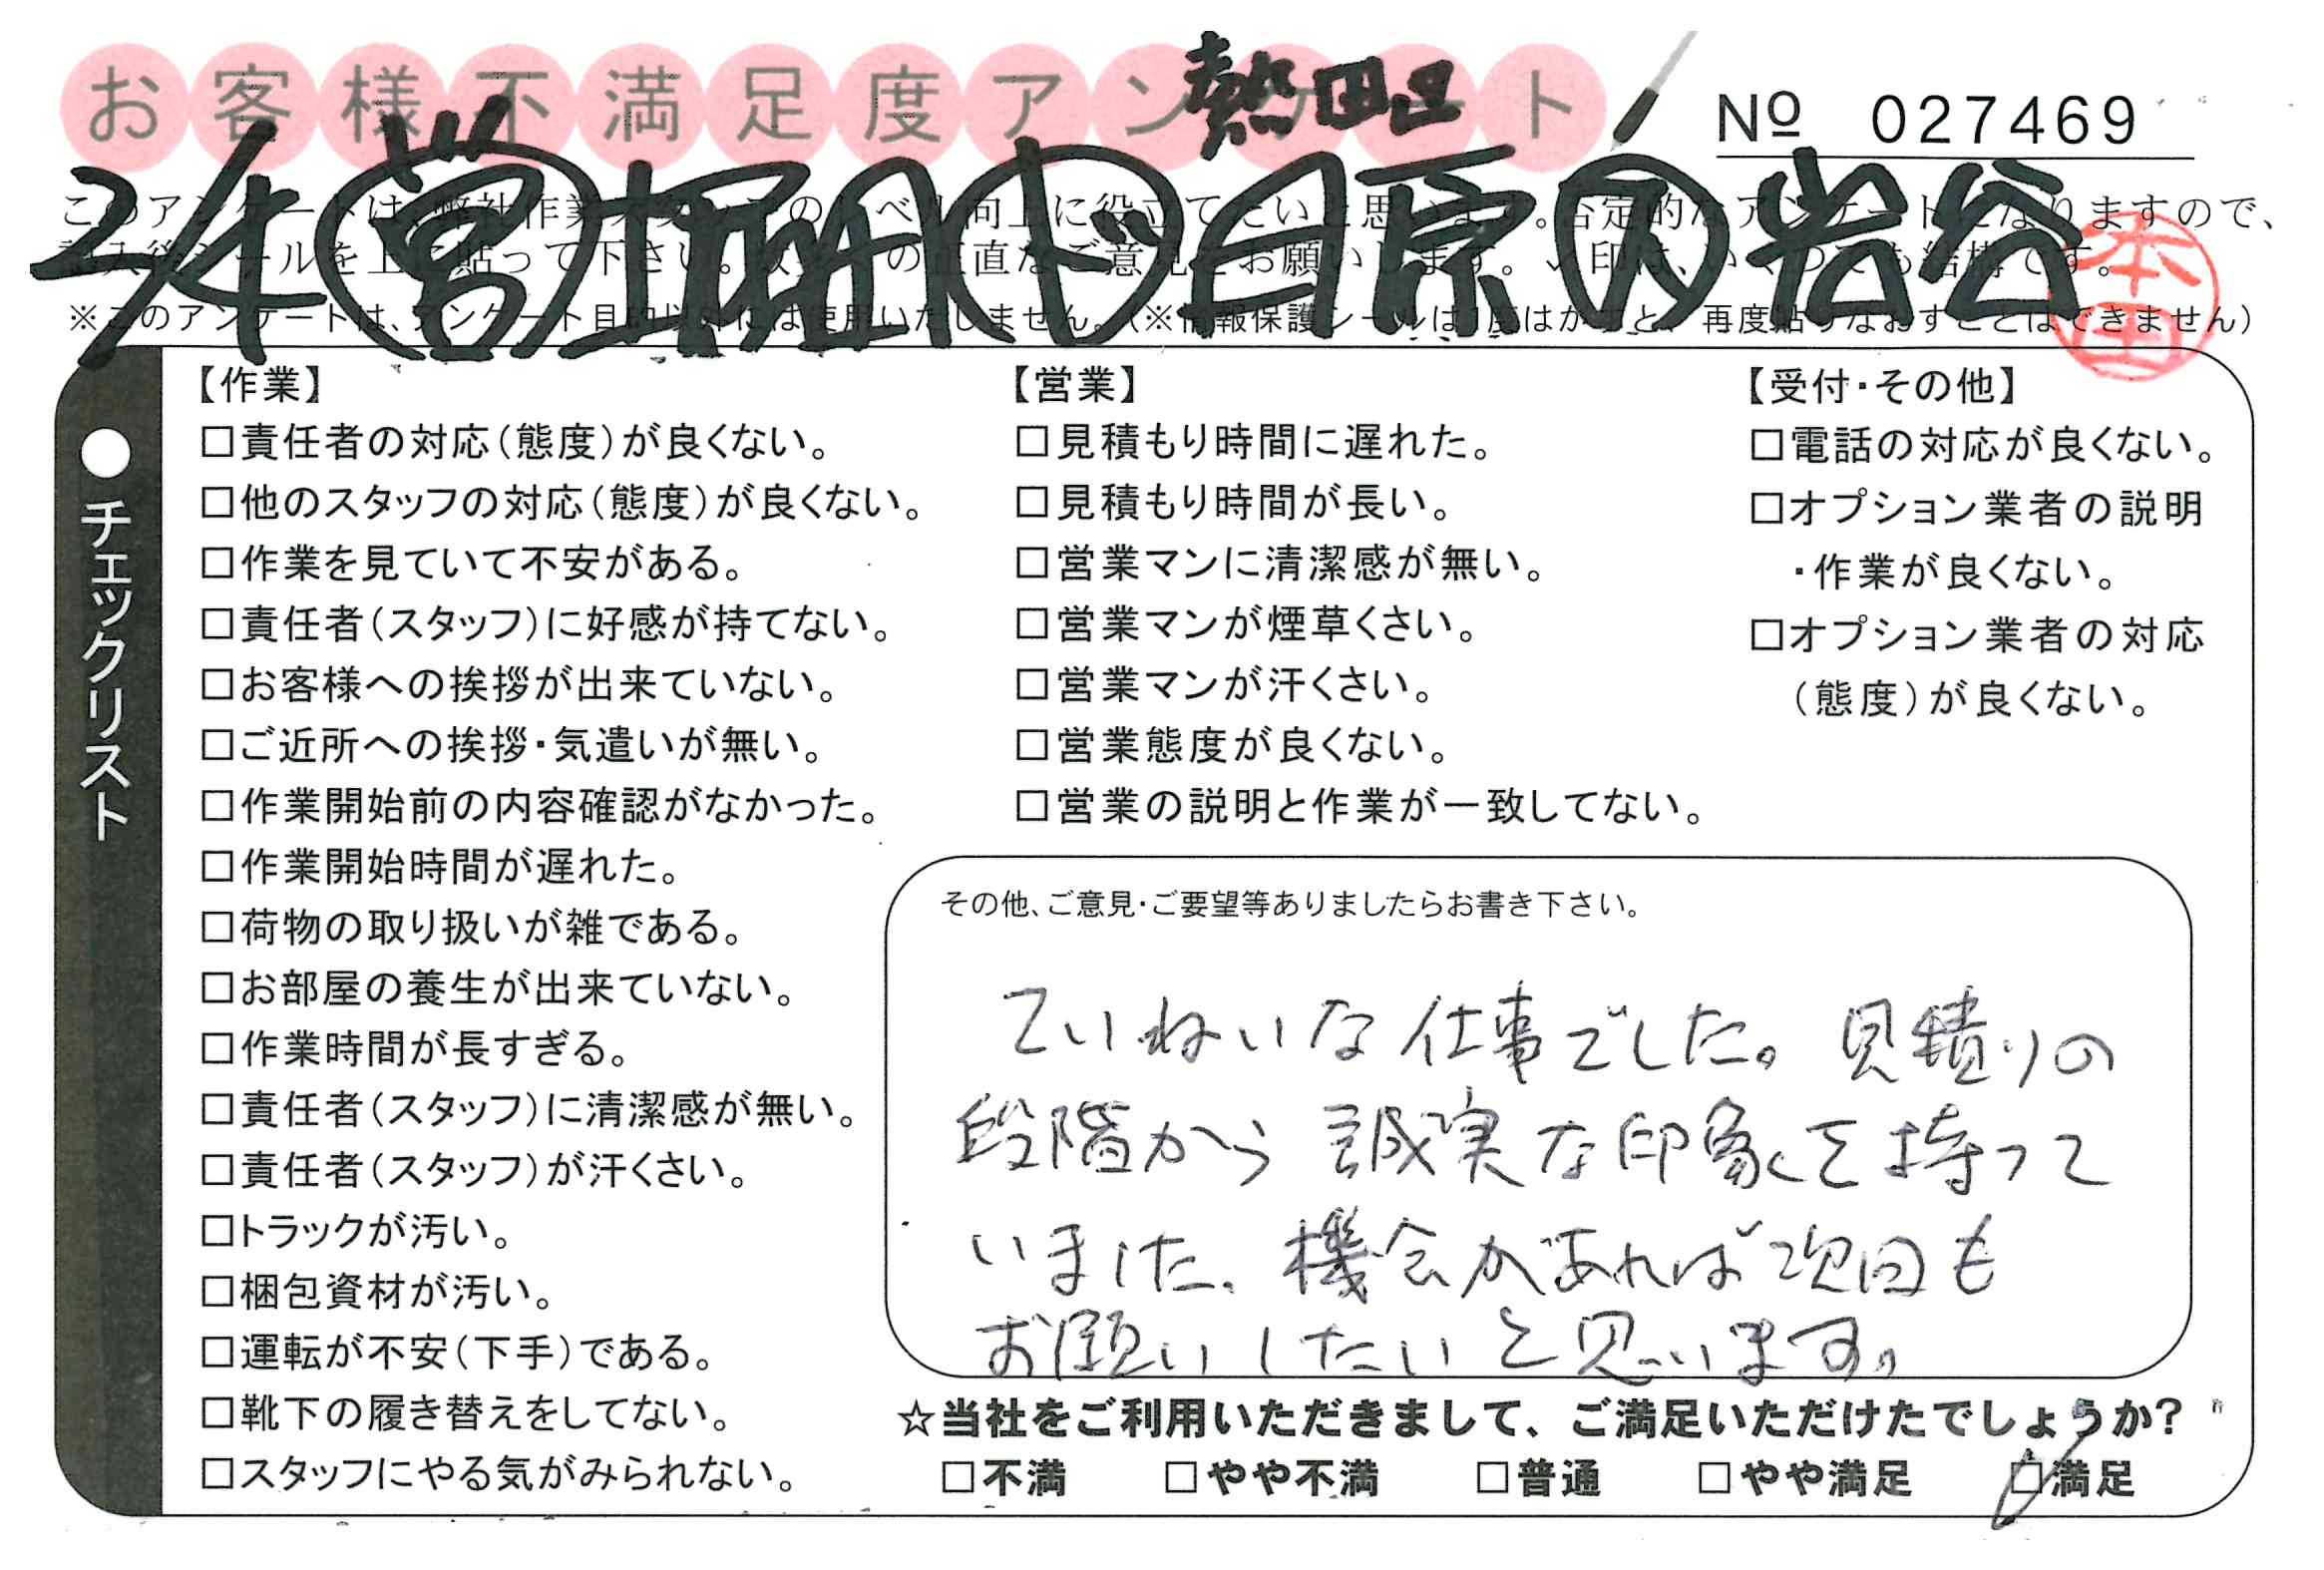 お客様不満足度アンケート
熱田区
No 027469
3/4 営 堀田 ド 日原 ス 岩谷
本田
※このアンケートは、アンケート目的以外には使用いたしません。(※情報保護シールは1度はがすと、再度貼りなおすことはできません)
●チェックリスト
【作業】
□責任者の対応(態度)が良くない。
□他のスタッフの対応(態度)が良くない。
□作業を見ていて不安がある。
□責任者(スタッフ)に好感が持てない。
□お客様への挨拶が出来ていない。
□ご近所への挨拶・気遣いが無い。
□作業開始前の内容確認がなかった。
□作業開始時間が遅れた。
□荷物の取り扱いが雑である。
□お部屋の養生が出来ていない。
□作業時間が長すぎる。
□責任者(スタッフ)に清潔感が無い。
□責任者(スタッフ)が汗くさい。
□トラックが汚い。
□梱包資材が汚い。
□運転が不安(下手)である。
□靴下の履き替えをしてない。
□スタッフにやる気がみられない。
【営業】
□見積もり時間に遅れた。
□見積もり時間が長い。
□営業マンに清潔感が無い。
□営業マンが煙草くさい。
□営業マンが汗くさい。
□営業態度が良くない。
□営業の説明と作業が一致してない。
【受付・その他】
□電話の対応が良くない。
□オプション業者の説明
・作業が良くない。
□オプション業者の対応
(態度)が良くない。
その他、ご意見・ご要望等ありましたらお書き下さい。
ていねいな仕事でした。見積りの
段階から誠実な印象を持って
いました。機会があれば次回も
お願いしたいと思います。
☆当社をご利用いただきまして、ご満足いただけたでしょうか?
□不満 □やや不満 □普通 □やや満足 ☑満足